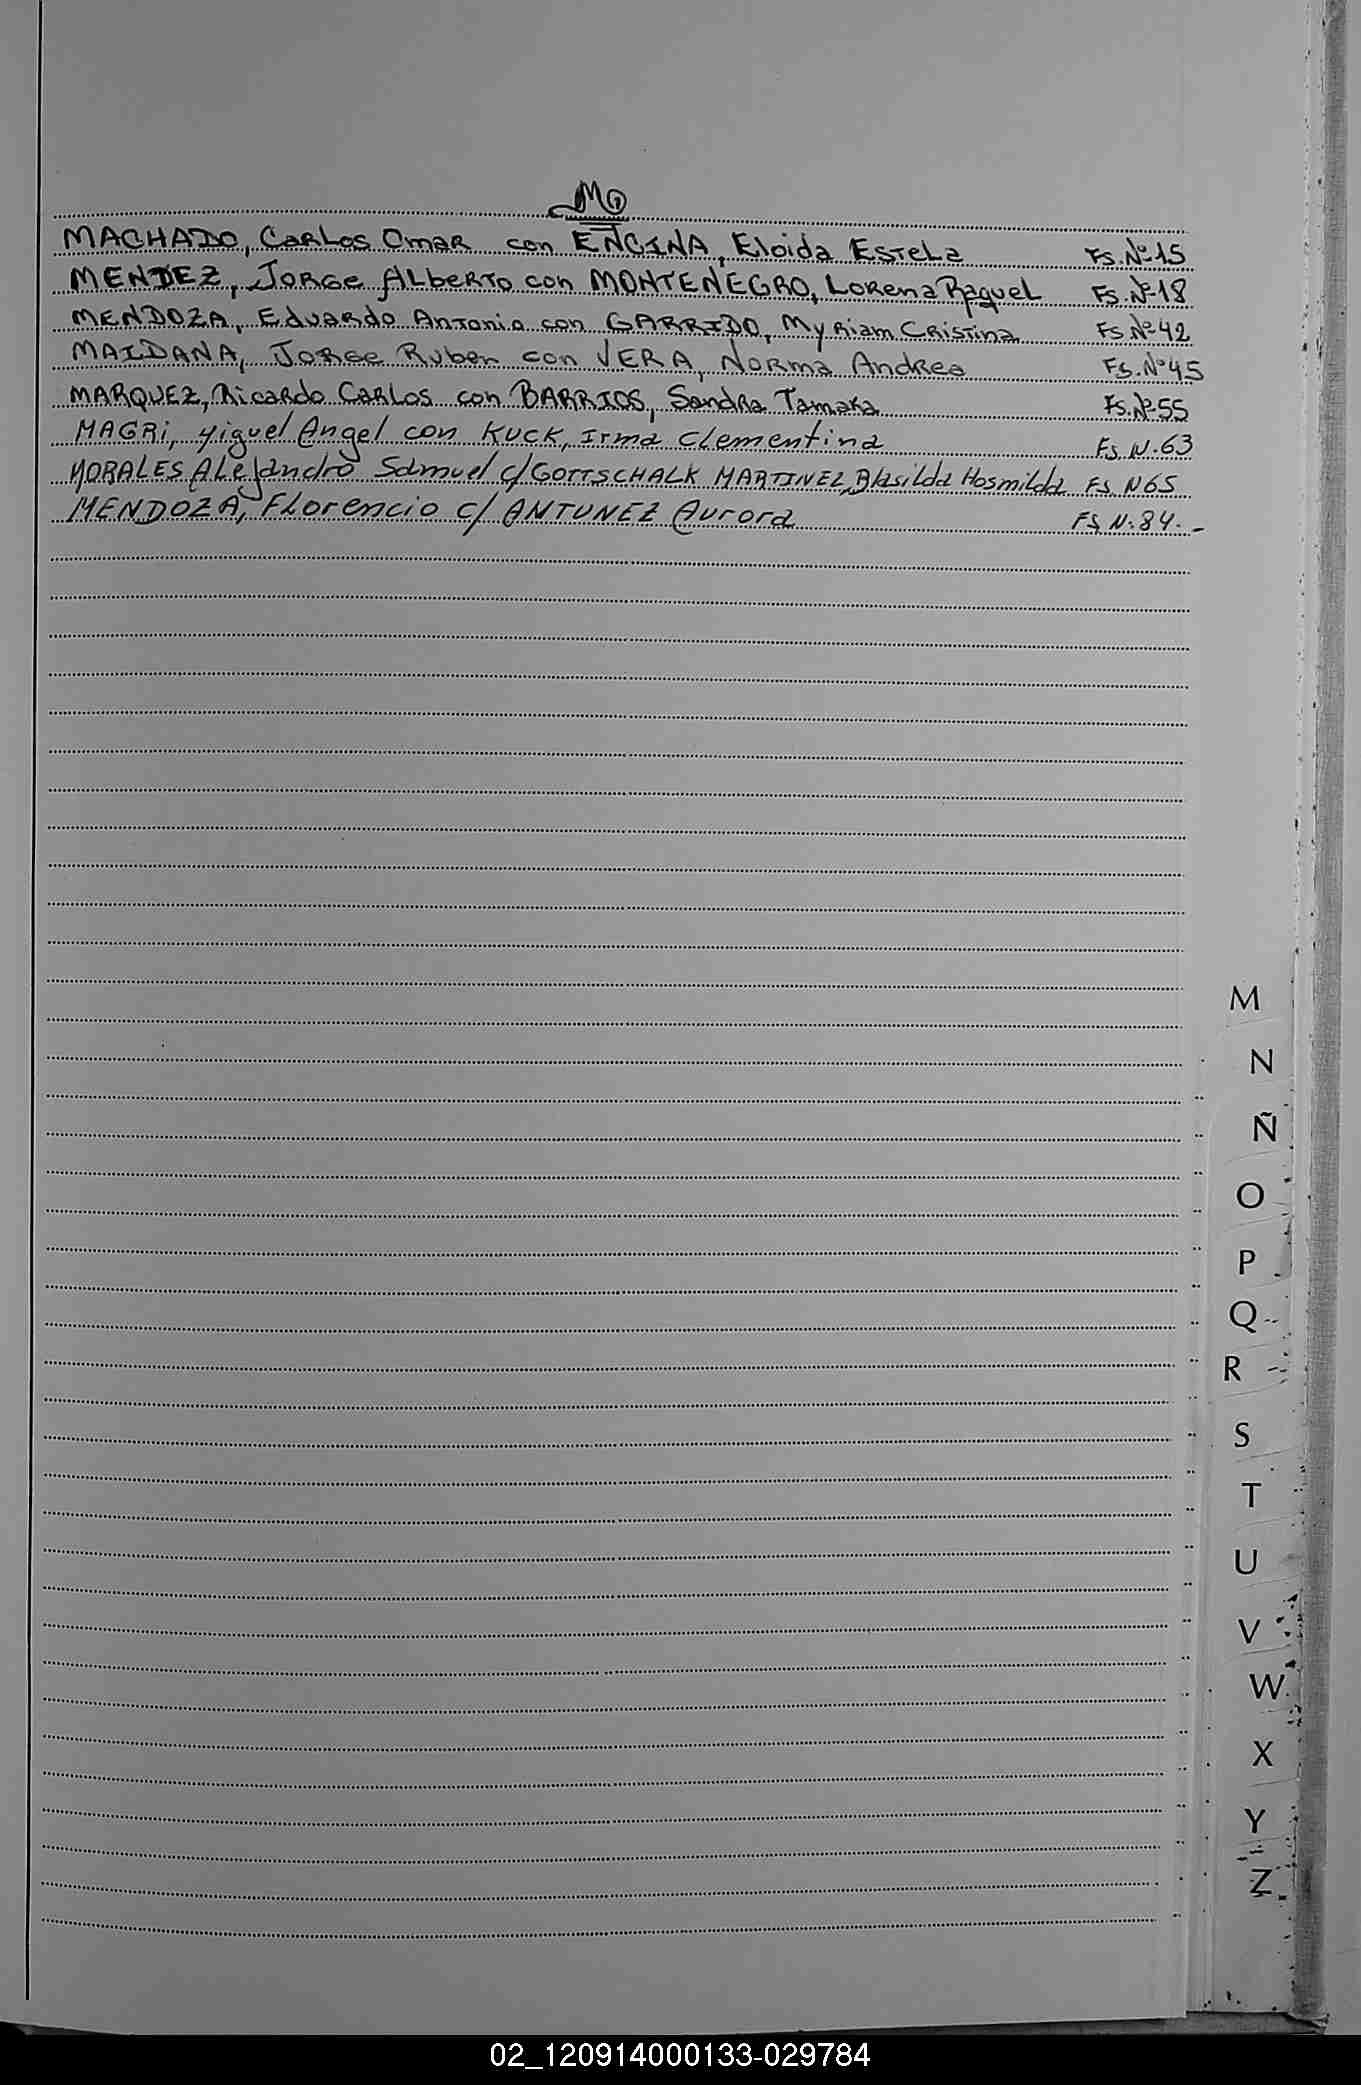 M
MACHADO, Carlos Omar con ENCINA, Eloida Estela Fs. Nº 15
MENDEZ, Jorge Alberto con MONTENEGRO, Lorena Raquel Fs. Nº 18
MENDOZA, Eduardo Antonio con GARRIDO, Myriam Cristina Fs. Nº 42
MAIDANA, Jorge Ruben con VERA, Norma Andrea Fs. Nº 45
MARQUEZ, Ricardo Carlos con BARRIOS, Sandra Tamara Fs. Nº 55
MAGRi, Miguel Angel con KUCK, Irma Clementina Fs N. 63
MORALES Alejandro Samuel c/ GOTTSCHALK MARTINEZ, Blasilda Hosmilda Fs N 65
MENDOZA, Florencio c/ ANTUNEZ Aurora Fs N. 84.-
M
N
Ñ
O
P
Q
R
S
T
U
V
W
X
Y
Z
02_120914000133-029784